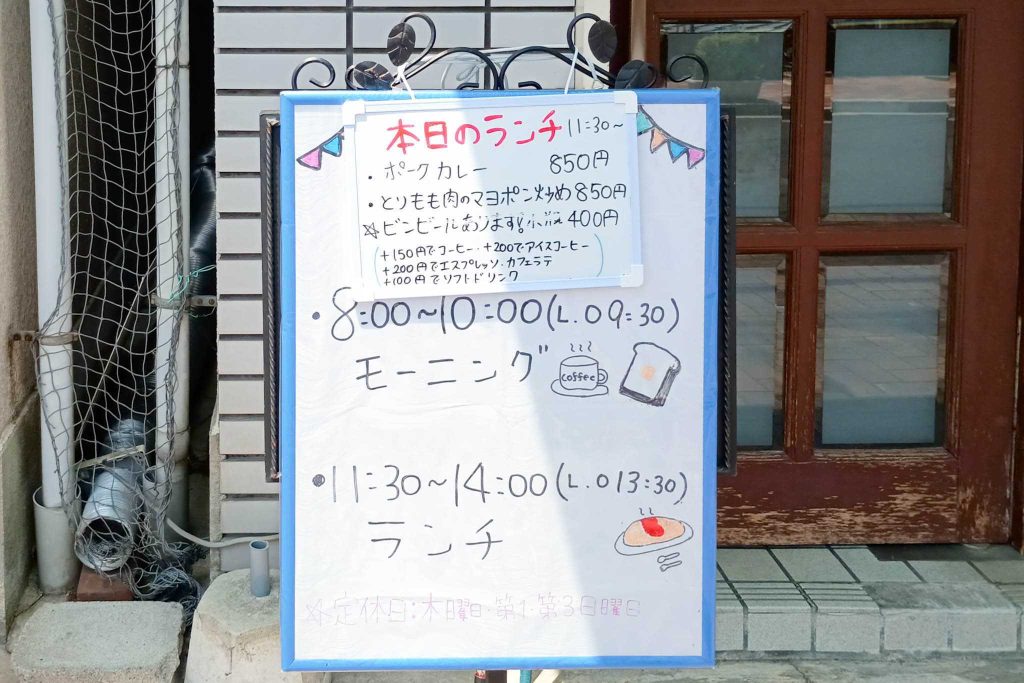 本日のランチ 11:30~
・ポークカレー 850円
・とりもも肉のマヨポン炒め 850円
☆ビンビールあります!小瓶 400円
+150円でコーヒー・+200でアイスコーヒー
+200円でエスプレッソ・カフェラテ
+100円でソフトドリンク
・8:00~10:00(L.O 9:30)
モーニング
coffee
・11:30~14:00(L.O 13:30)
ランチ
☆定休日:木曜日・第1・第3日曜日